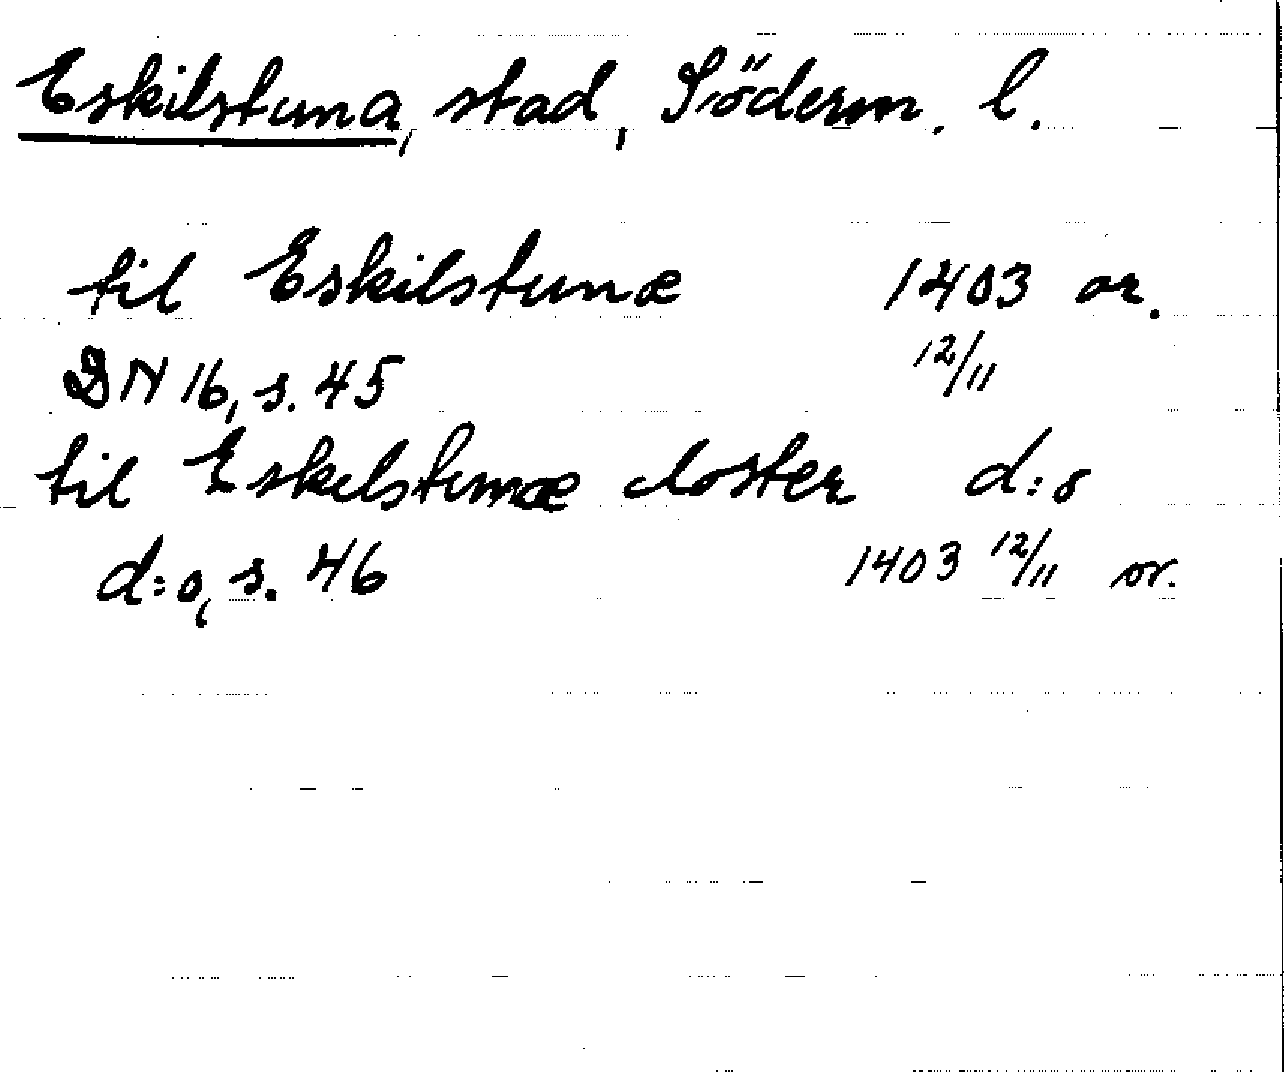 Eskilstuna, stad, Söderm. l.
til Eskilstunæ 1403 or.
DN 16, s. 45 12/11
til Eskelstunæ closter d:o
d:o, s. 46 1403 12/11 or.